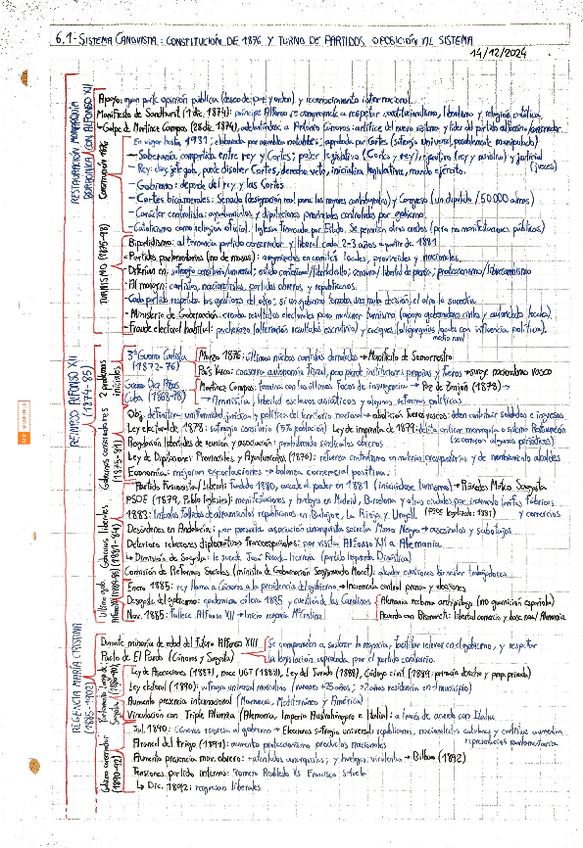 6.1- SISTEMA CANOVISTA: CONSTITUCIÓN DE 1876 Y TURNO DE PARTIDOS. OPOSICIÓN AL SISTEMA
14/12/2024
RESTAURACIÓN MONARQUÍA BORBÓNICA CON ALFONSO XII
Apoyo: gran parte opinión pública (deseo de paz y orden) y reconocimiento internacional.
Manifiesto de Sandhurst (1 dic. 1874): príncipe Alfonso se compromete a respetar constitucionalismo, liberalismo y religión católica.
Golpe de Martínez Campos (28 dic. 1874), adelantándose a Antonio Cánovas: artífice del nuevo sistema y líder del partido alfonsino/conservador.
Constitución 1876
- En vigor hasta 1931; elaborada por asamblea notables; aprobada por Cortes (sufragio universal, posiblemente manipulado)
- Soberanía compartida entre rey y Cortes; poder legislativo (Cortes y rey), ejecutivo (rey y ministros) y judicial (jueces)
- Rey: dirige, puede disolver Cortes, derecho veto, iniciativa legislativa, mando ejército.
- Gobierno: depende del rey y las Cortes
- Cortes bicamerales: Senado (designación real para los mayores contribuyentes) y Congreso (un diputado / 50.000 almas)
- Carácter centralista: ayuntamientos y diputaciones provinciales controlados por gobierno.
- Catolicismo como religión oficial: Iglesia financiada por Estado. Se permiten otros credos (pero no manifestaciones públicas)
TURNISMO (1875-98)
Bipartidismo: alternancia partido conservador y liberal cada 2-3 años a partir de 1881
- Partidos parlamentarios (no de masas): organizados en comités locales, provinciales y nacionales.
- Difieren en: sufragio censitario/universal; estado confesional/libertad culto; censura/libertad de prensa; proteccionismo/librecambismo
- Al margen: carlistas, nacionalistas, partidos obreros y republicanos.
- Ministerio de Gobernación: creaba resultados electorales para mantener turnismo (apoyo gobernadores civiles y autoridades locales).
- Fraude electoral habitual: pucherazo (alteración resultados escrutinio) y caciques (oligarquías locales con influencia política).
medio rural
REINADO ALFONSO XII (1874-85)
2 problemas iniciales
3ª Guerra Carlista (1872-76)
Marzo 1876: últimos núcleos carlistas derrotados → Manifiesto de Somorrostro
País Vasco: conserva autonomía fiscal, pero pierde instituciones propias y fueros → surge nacionalismo vasco
Guerra Diez Años Cuba (1868-78)
Martínez Campos: termina con los últimos focos de insurgencia → Paz de Zanjón (1878) →
→ Amnistía, libertad esclavos asiáticos y algunas reformas políticas
Gobiernos conservadores (1875-81)
Obj. definitivo: uniformidad jurídica y política del territorio nacional → abolición fueros vascos: deben contribuir soldados e ingresos
Ley electoral de 1878: sufragio censitario (5% población) Ley de imprenta de 1879: delito criticar monarquía o sistema Restauración
(se cerraron algunos periódicos)
Regulación libertades de reunión y asociación: prohibiendo sindicatos obreros
Ley de Diputaciones Provinciales y Ayuntamientos (1870): refuerza centralismo en materia presupuestaria y de nombramiento alcaldes
Economía: mejoran exportaciones → balanza comercial positiva.
Gobiernos liberales (1881-84)
Partido Fusionista/Liberal: fundado 1880, accede al poder en 1881 (iniciándose turnismo) → Práxedes Mateo Sagasta
PSOE (1879, Pablo Iglesias): manifestaciones y huelgas en Madrid, Barcelona y otras ciudades por incremento tarifas fabriles y comercios
1883: Intentos fallidos de alzamientos republicanos en Badajoz, La Rioja y Urgell. (PSOE legalizado: 1881)
Desórdenes en Andalucía: por presunta asociación anarquista secreta Mano Negra → asesinatos y sabotajes
Deterioro relaciones diplomáticas francoespañolas: por visita Alfonso XII a Alemania
↳ Dimisión de Sagasta: le sucede José Posada Herrera (partido Izquierda Dinástica)
Comisión de Reformas Sociales (ministro de Gobernación Segismundo Moret): abordar cuestiones bienestar trabajadores
Último gob. Alfonso (1884-85)
Enero 1885: rey llama a Cánovas a la presidencia del gobierno → Incrementa control prensa y elecciones
Desgaste del gobierno: epidemia cólera 1885 y cuestión de las Carolinas
Alemania reclama archipiélago (no guarnición española)
Acuerdo con Bismarck: libertad comercio y base naval Alemania
Nov. 1885: fallece Alfonso XII → Inicio regencia Mª Cristina
REGENCIA MARÍA CRISTINA (1885-1902)
Durante minoría de edad del futuro Alfonso XIII
Pacto de El Pardo (Cánovas y Sagasta)
Se comprometen a sostener la regencia, facilitar relevo en el gobierno, y respetar
la legislación aprobada por el partido contrario.
Parlamento Largo de Sagasta (1885-90)
Ley de Asociaciones (1887), nace UGT (1888), Ley del Jurado (1888), Código civil (1889: primacía derecho y prop. privada)
Ley electoral (1890): sufragio universal masculino (varones +25 años; +2 años residencia en el municipio)
Aumento presencia internacional (Marruecos, Mediterráneo y América)
Vinculación con Triple Alianza (Alemania, Imperio Austrohúngaro e Italia): a través de acuerdo con Italia
Gobierno conservador (1890-92)
Jul. 1890: Cánovas regresa al gobierno → Elecciones sufragio universal: republicanos, nacionalistas catalanes y carlistas aumentan
representación parlamentaria
Arancel del trigo (1891): aumento proteccionismo productos nacionales
Aumento presencia mov. obrero: +atentados anarquistas; y huelgas violentas → Bilbao (1892)
Tensiones partido internas: Romero Robledo vs Francisco Silvela
↳ Dic. 1892: regresan liberales